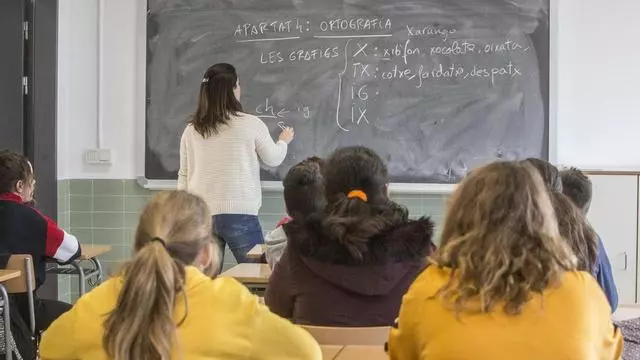 APARTAT 4: ORTOGRAFIA
Xarango
LES GRAFIES
X: xibfon, xocolata, oixata,
TX: cotxe, fardatxo, despatx
iG:
iX:
ch ← ig